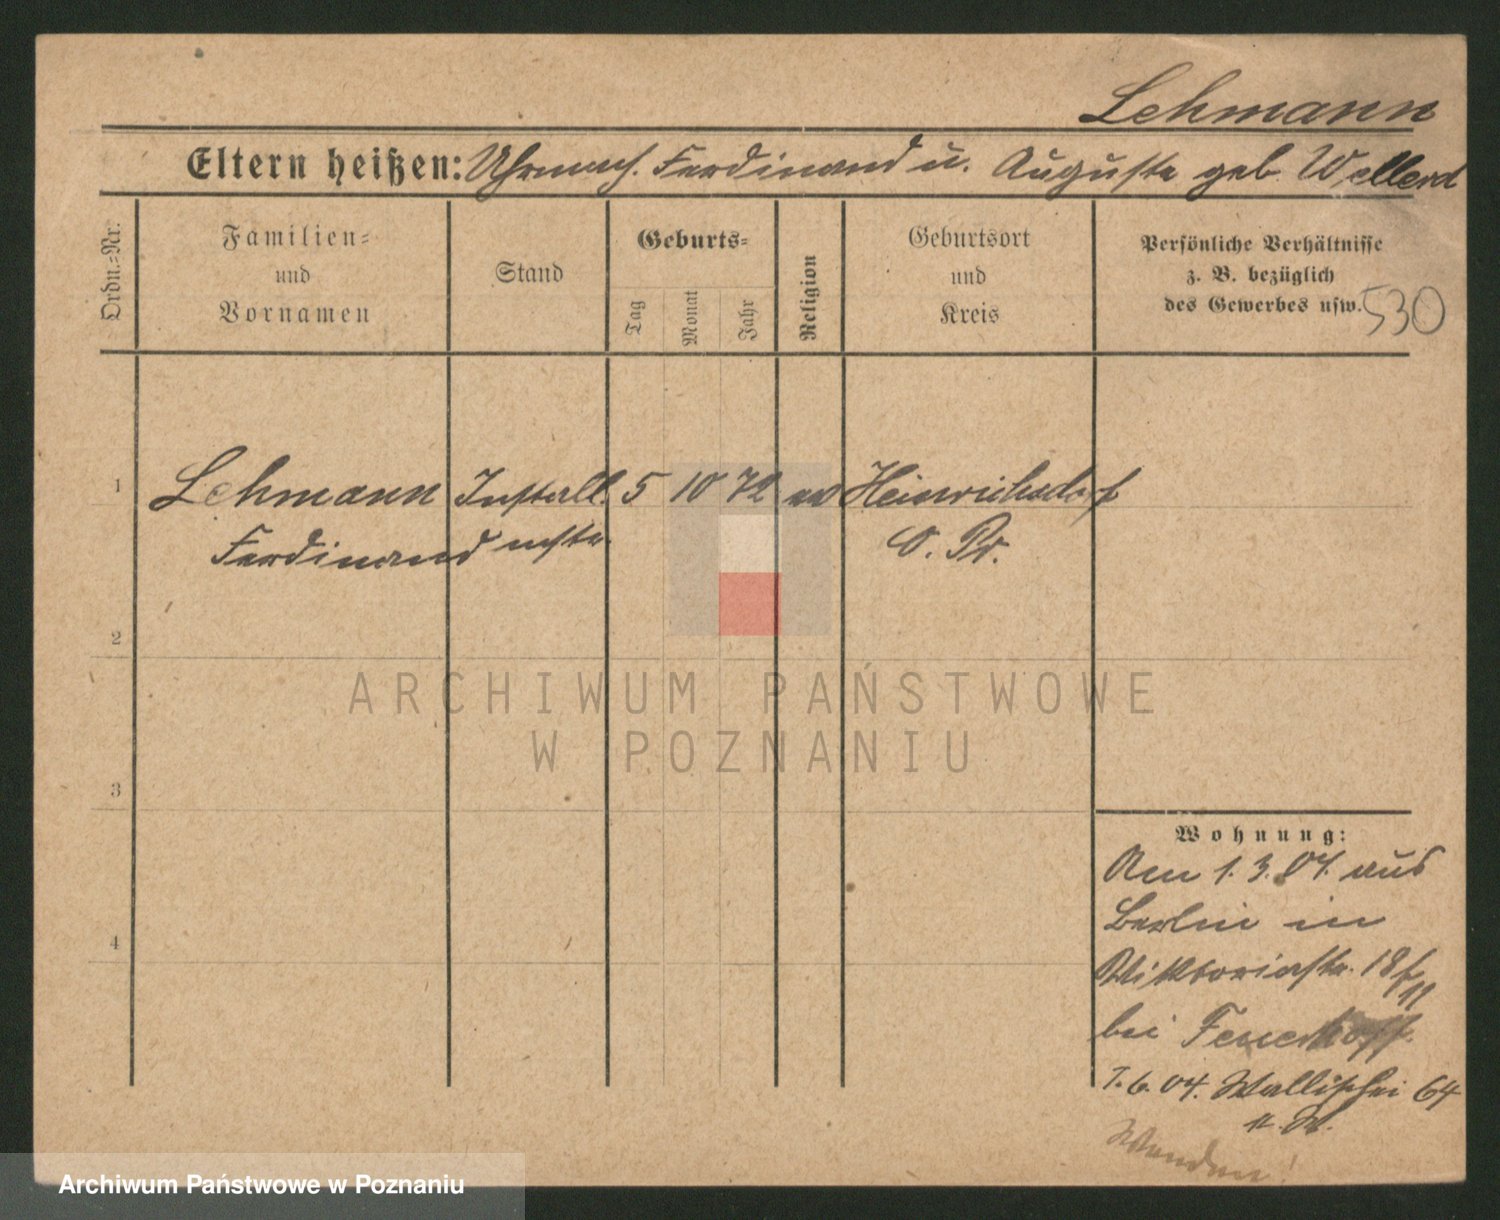 Lehmann
Eltern heißen: Uhrmach. Ferdinand u. Auguste geb. Wellerd
Ordn.-Nr.
Familien-
und
Vornamen
Stand
Geburts-
Tag
Monat
Jahr
Religion
Geburtsort
und
Kreis
Persönliche Verhältnisse
z. B. bezüglich
des Gewerbes usw.
530
1 Lehmann Install. 5 10 72 ev Heinrichsdorf
Ferdinand mstr. O. Pr.
2
3
4
Wohnung:
Am 1.3.04. aus
Berlin in
Viktoriastr. 18
bei Feuerhoff.
1.6.04. Wallischei 64
Wenden!
ARCHIWUM PAŃSTWOWE
W POZNANIU
Archiwum Państwowe w Poznaniu